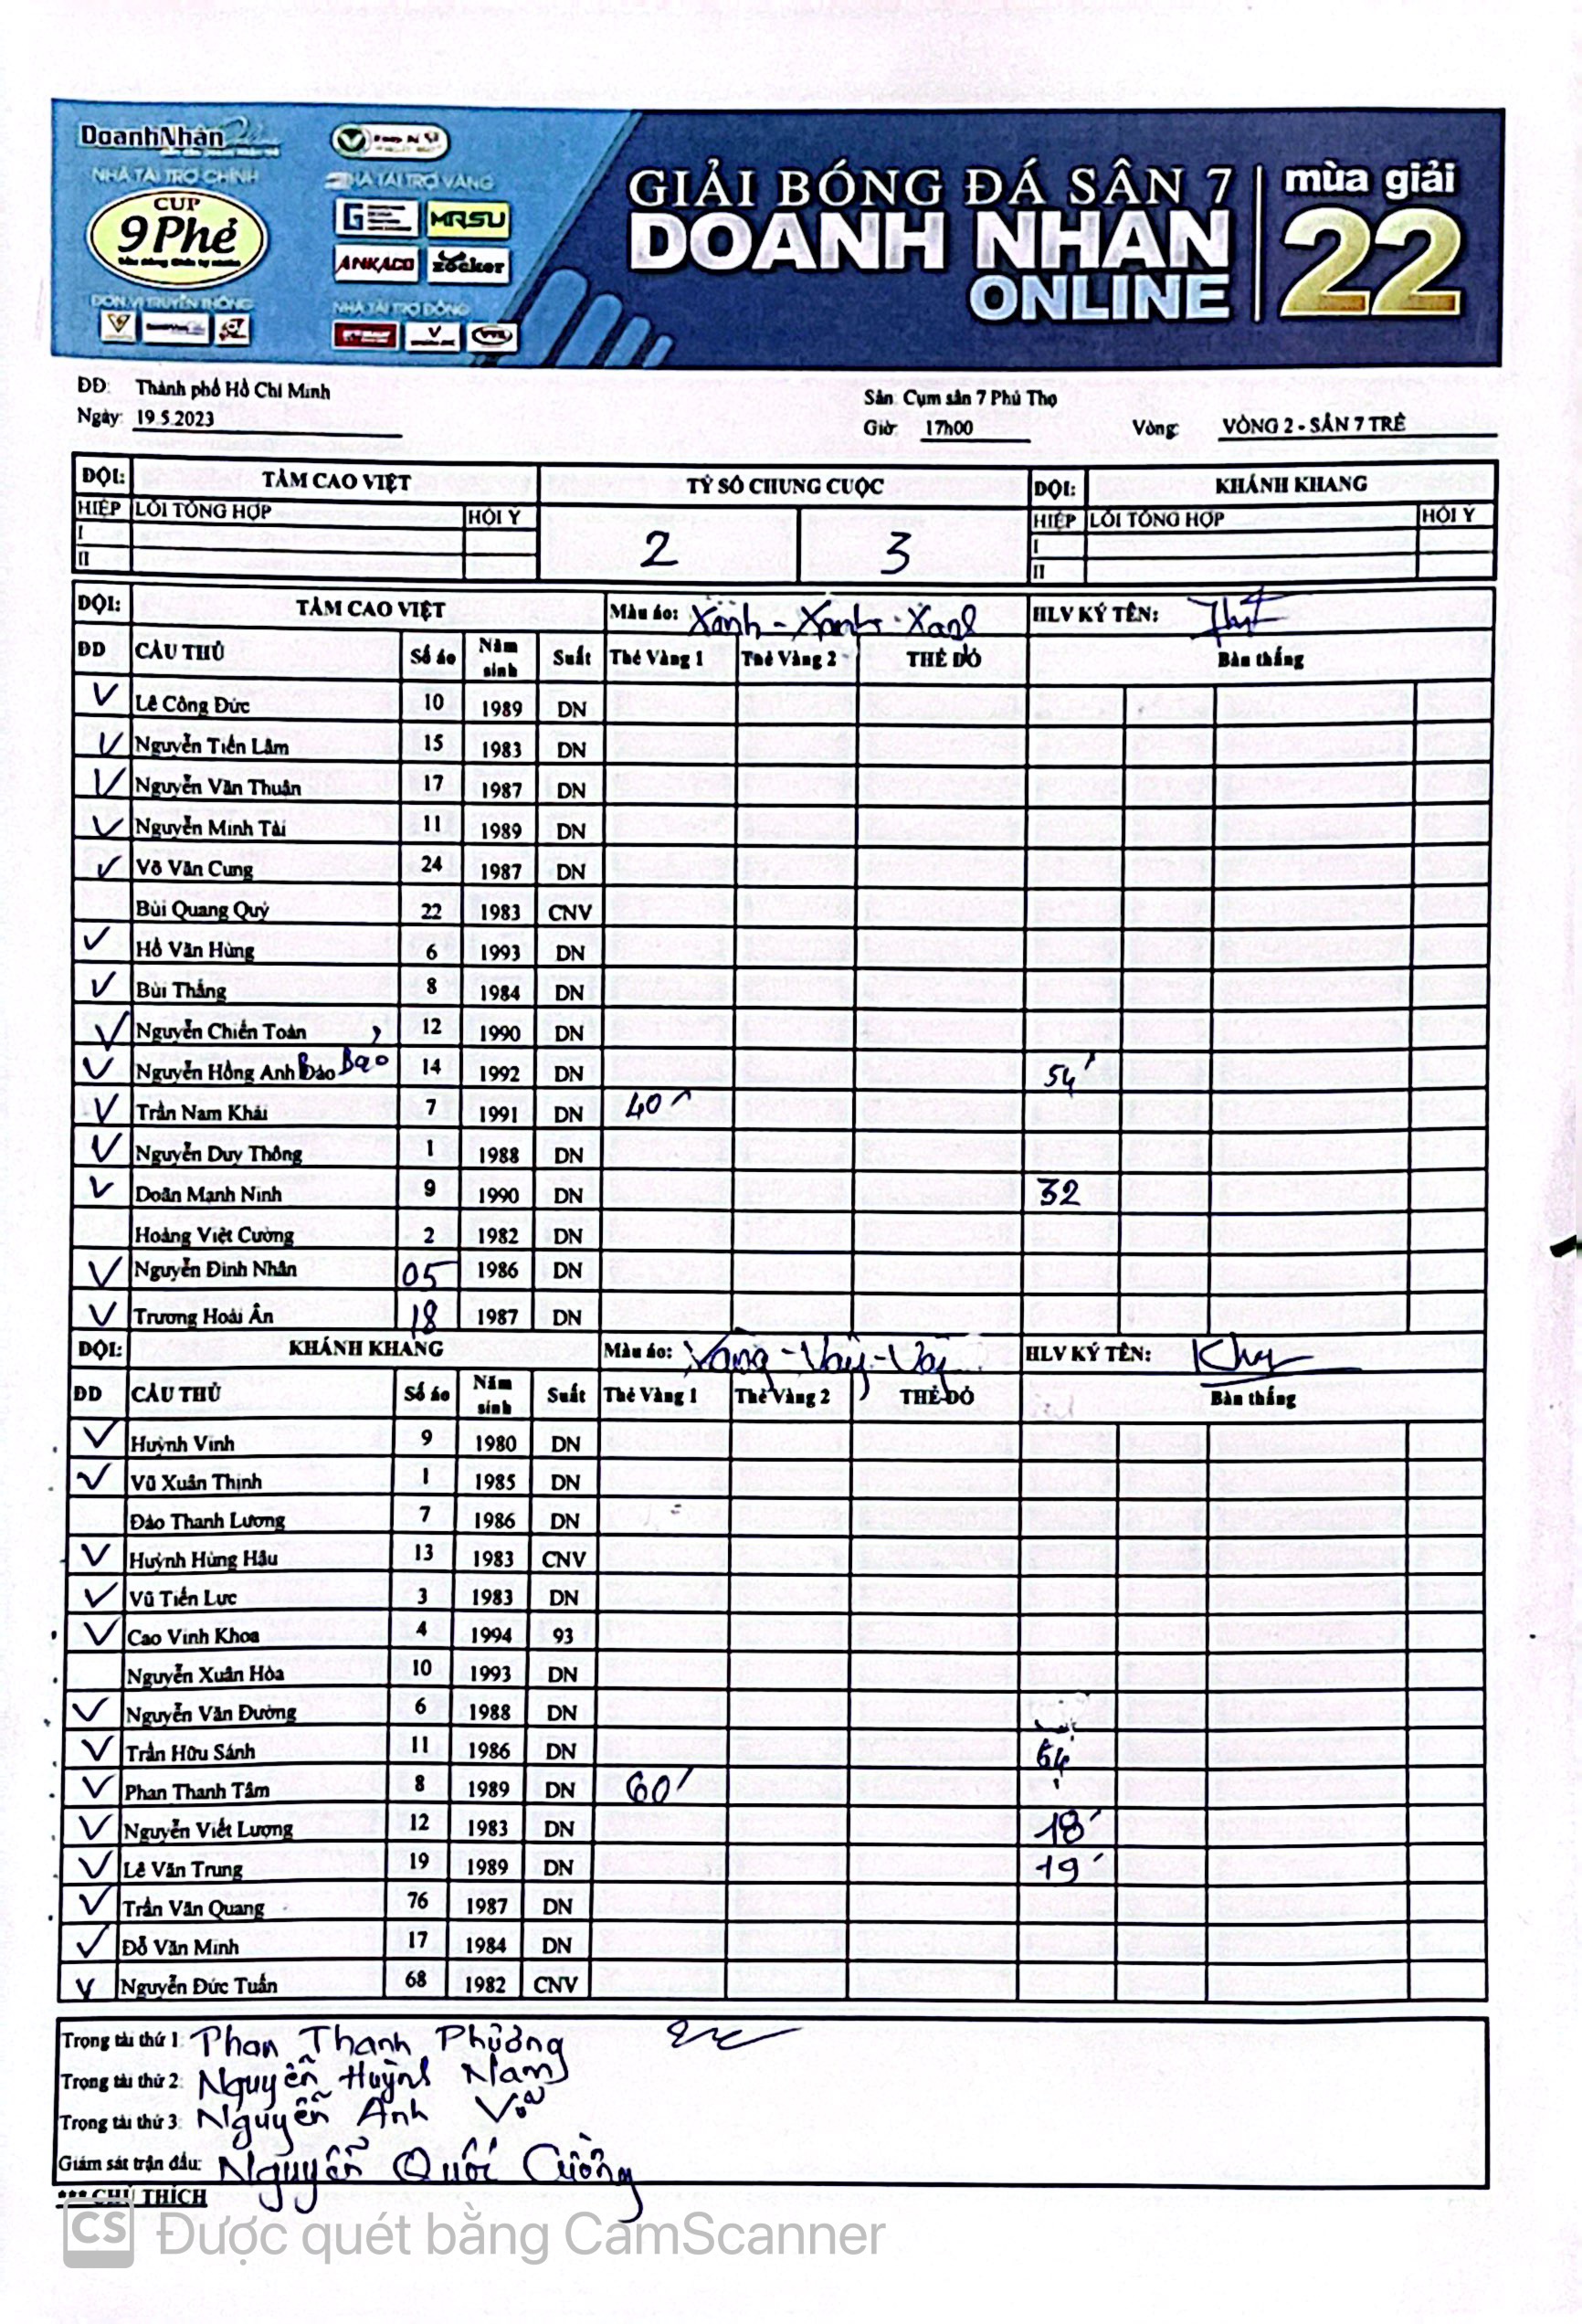 DoanhNhân
NHÀ TÀI TRỢ CHÍNH
NHÀ TÀI TRỢ VÀNG
CUP
9 Phẻ
MRSU
ANKACO
zocker
ĐƠN VỊ TRUYỀN THÔNG
NHÀ TÀI TRỢ ĐỒNG
GIẢI BÓNG ĐÁ SÂN 7
DOANH NHÂN
ONLINE
mùa giải
22
ĐĐ: Thành phố Hồ Chí Minh
Sân: Cụm sân 7 Phú Thọ
Ngày: 19.5.2023
Giờ: 17h00 Vòng: VÒNG 2 - SÂN 7 TRẺ
ĐỘI: TẦM CAO VIỆT TỶ SỐ CHUNG CUỘC ĐỘI: KHÁNH KHANG
HIỆP LỖI TỔNG HỢP HỘI Ý 2 3 HIỆP LỖI TỔNG HỢP HỘI Ý
I I
II II
ĐỘI: TẦM CAO VIỆT Màu áo: Xanh - Xanh - Xanh HLV KÝ TÊN:
ĐD CẦU THỦ Số áo Năm sinh Suất Thẻ Vàng 1 Thẻ Vàng 2 THẺ ĐỎ Bàn thắng
Lê Công Đức 10 1989 DN
Nguyễn Tiến Lâm 15 1983 DN
Nguyễn Văn Thuận 17 1987 DN
Nguyễn Minh Tài 11 1989 DN
Võ Văn Cung 24 1987 DN
Bùi Quang Quý 22 1983 CNV
Hồ Văn Hùng 6 1993 DN
Bùi Thắng 8 1984 DN
Nguyễn Chiến Toàn 12 1990 DN
Nguyễn Hồng Anh Bảo Bảo 14 1992 DN 54'
Trần Nam Khải 7 1991 DN 40'
Nguyễn Duy Thông 1 1988 DN
Doãn Mạnh Ninh 9 1990 DN 32
Hoàng Việt Cường 2 1982 DN
Nguyễn Đình Nhân 05 1986 DN
Trương Hoài Ân 18 1987 DN
ĐỘI: KHÁNH KHANG Màu áo: Vàng - Vàng - Vàng HLV KÝ TÊN:
ĐD CẦU THỦ Số áo Năm sinh Suất Thẻ Vàng 1 Thẻ Vàng 2 THẺ ĐỎ Bàn thắng
Huỳnh Vinh 9 1980 DN
Vũ Xuân Thịnh 1 1985 DN
Đào Thanh Lương 7 1986 DN
Huỳnh Hùng Hậu 13 1983 CNV
Vũ Tiến Lực 3 1983 DN
Cao Vinh Khoa 4 1994 93
Nguyễn Xuân Hòa 10 1993 DN
Nguyễn Văn Đường 6 1988 DN
Trần Hữu Sánh 11 1986 DN
Phan Thanh Tâm 8 1989 DN 60'
Nguyễn Viết Lượng 12 1983 DN 18'
Lê Văn Trung 19 1989 DN 19'
Trần Văn Quang 76 1987 DN
Đỗ Văn Minh 17 1984 DN
Nguyễn Đức Tuấn 68 1982 CNV
Trọng tài thứ 1: Phan Thanh Phượng
Trọng tài thứ 2: Nguyễn Huỳnh Nam
Trọng tài thứ 3: Nguyễn Anh Vũ
Giám sát trận đấu: Nguyễn Quốc Cường
*** CHÚ THÍCH
CS Được quét bằng CamScanner